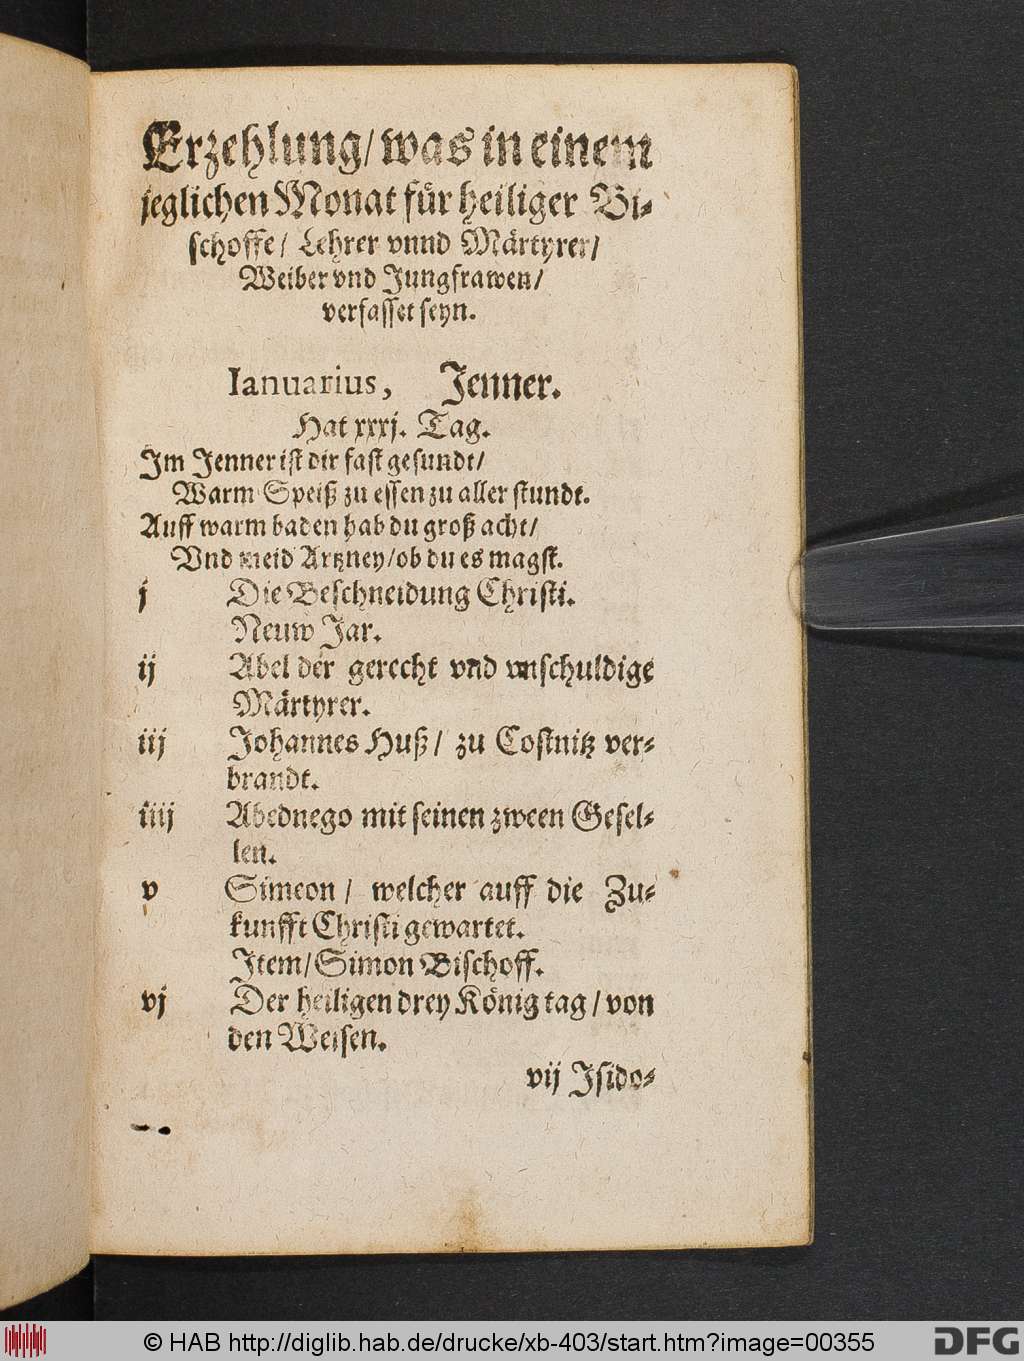 Erzehlung/ was in einem
jeglichen Monat für heiliger Bi⸗
schoffe/ Lehrer vnnd Märtyrer/
Weiber vnd Jungfrawen/
verfasset seyn.
Ianuarius, Jenner.
Hat xxxj. Tag.
Im Jenner ist dir fast gesundt/
Warm Speiß zu essen zu aller stundt.
Auff warm baden hab du groß acht/
Vnd meid Artzney/ ob du es magst.
j Die Beschneidung Christi.
Neuw Jar.
ij Abel der gerecht vnd vnschuldige
Märtyrer.
iij Johannes Huß/ zu Costnitz ver⸗
brandt.
iiij Abednego mit seinen zween Gesel⸗
len.
v Simeon/ welcher auff die Zu⸗
kunfft Christi gewartet.
Item/ Simon Bischoff.
vj Der heiligen drey König tag/ von
den Weisen.
vij Isido⸗
© HAB http://diglib.hab.de/drucke/xb-403/start.htm?image=00355
DFG